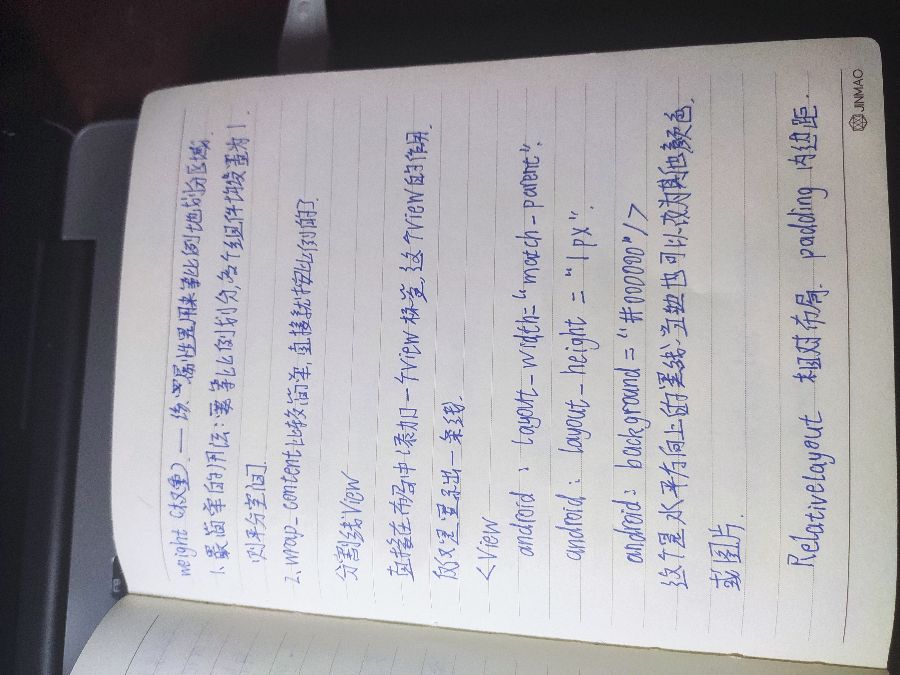 weight(权重)——该属性是用来等比例地划分区域.
1.最简单的用法:要等比例划分,各个组件均设置为1.
则平分空间.
2.wrap_content比较简单,直接就按比例的了
分割线View
直接在布局中添加一个view标签,这个view的作用.
仅仅是显示出一条线.
<View
android: layout-width="match-parent".
android: layout-height = "1px".
android: background="#000000"/>
这个是水平方向上的黑线.当然也可以改为其他颜色.
或图片.
Relativelayout 相对布局. padding 内边距.
JINMAO